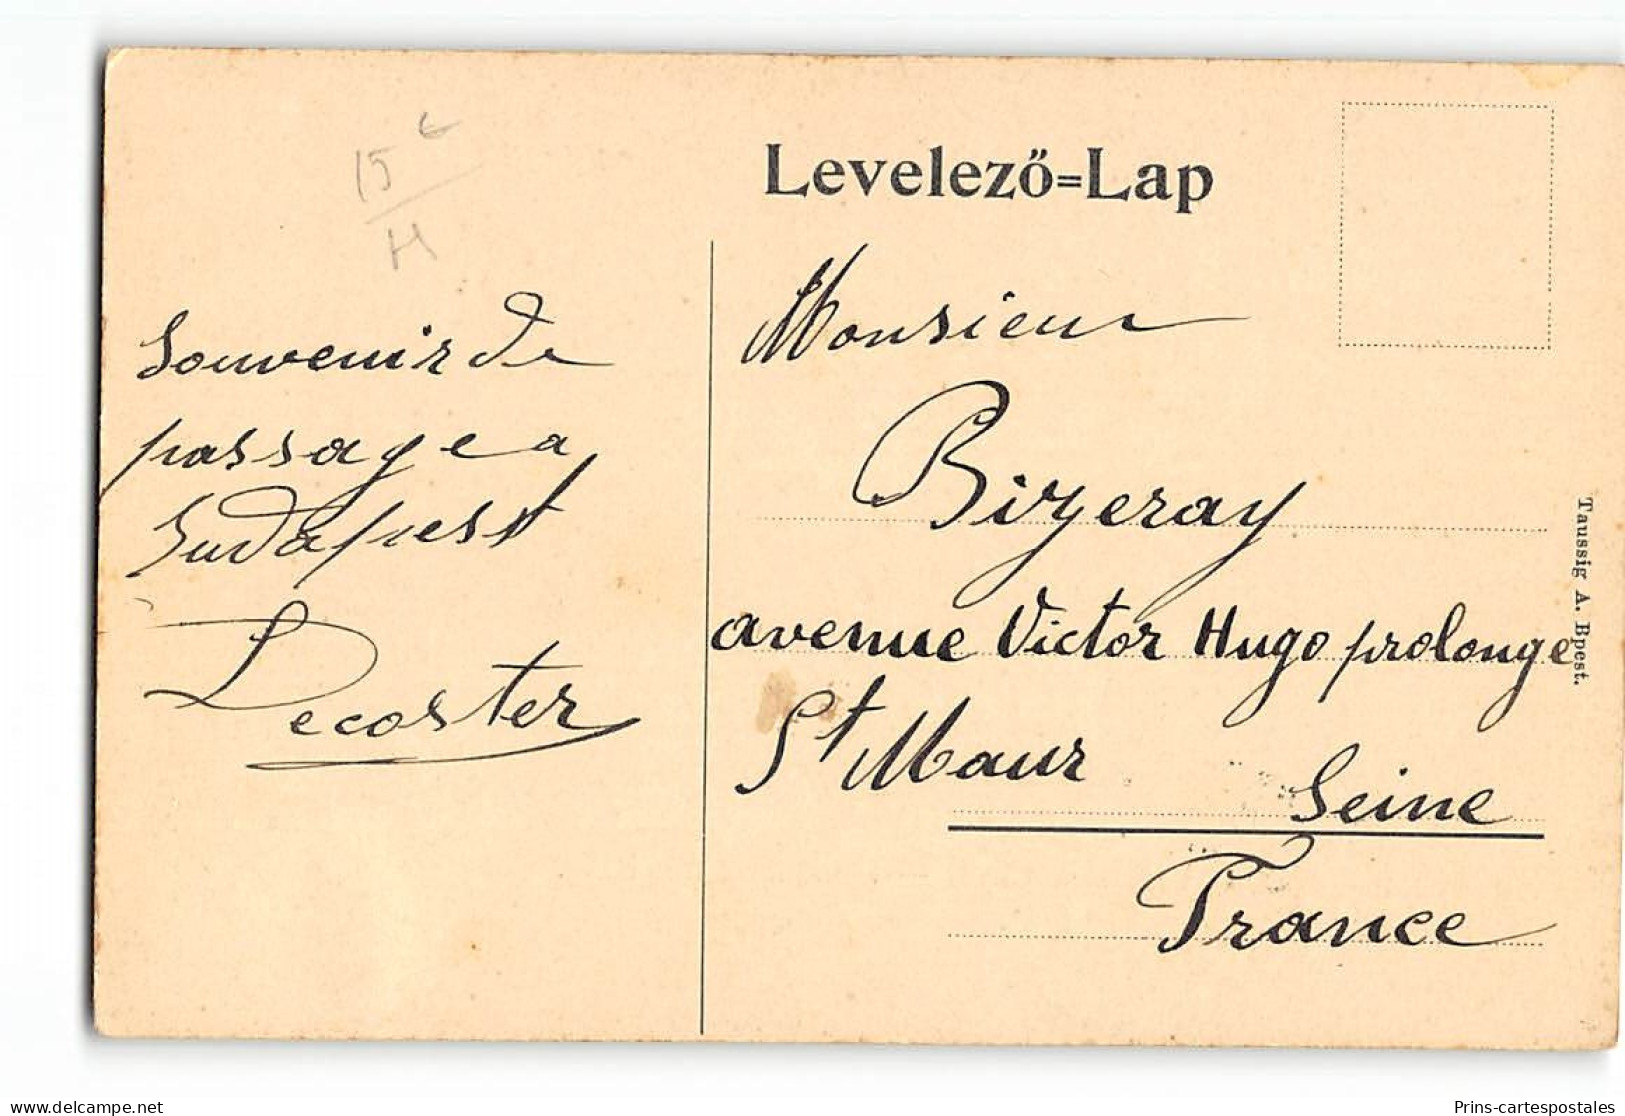 15 €
H
Levelező=Lap
Souvenir de
passage a
Budapest
Decoster
Monsieur
Bizeray
avenue Victor Hugo prolonge
St Maur
Seine
France
Taussig A. Bpest.
Prins-cartespostales
delcampe.net